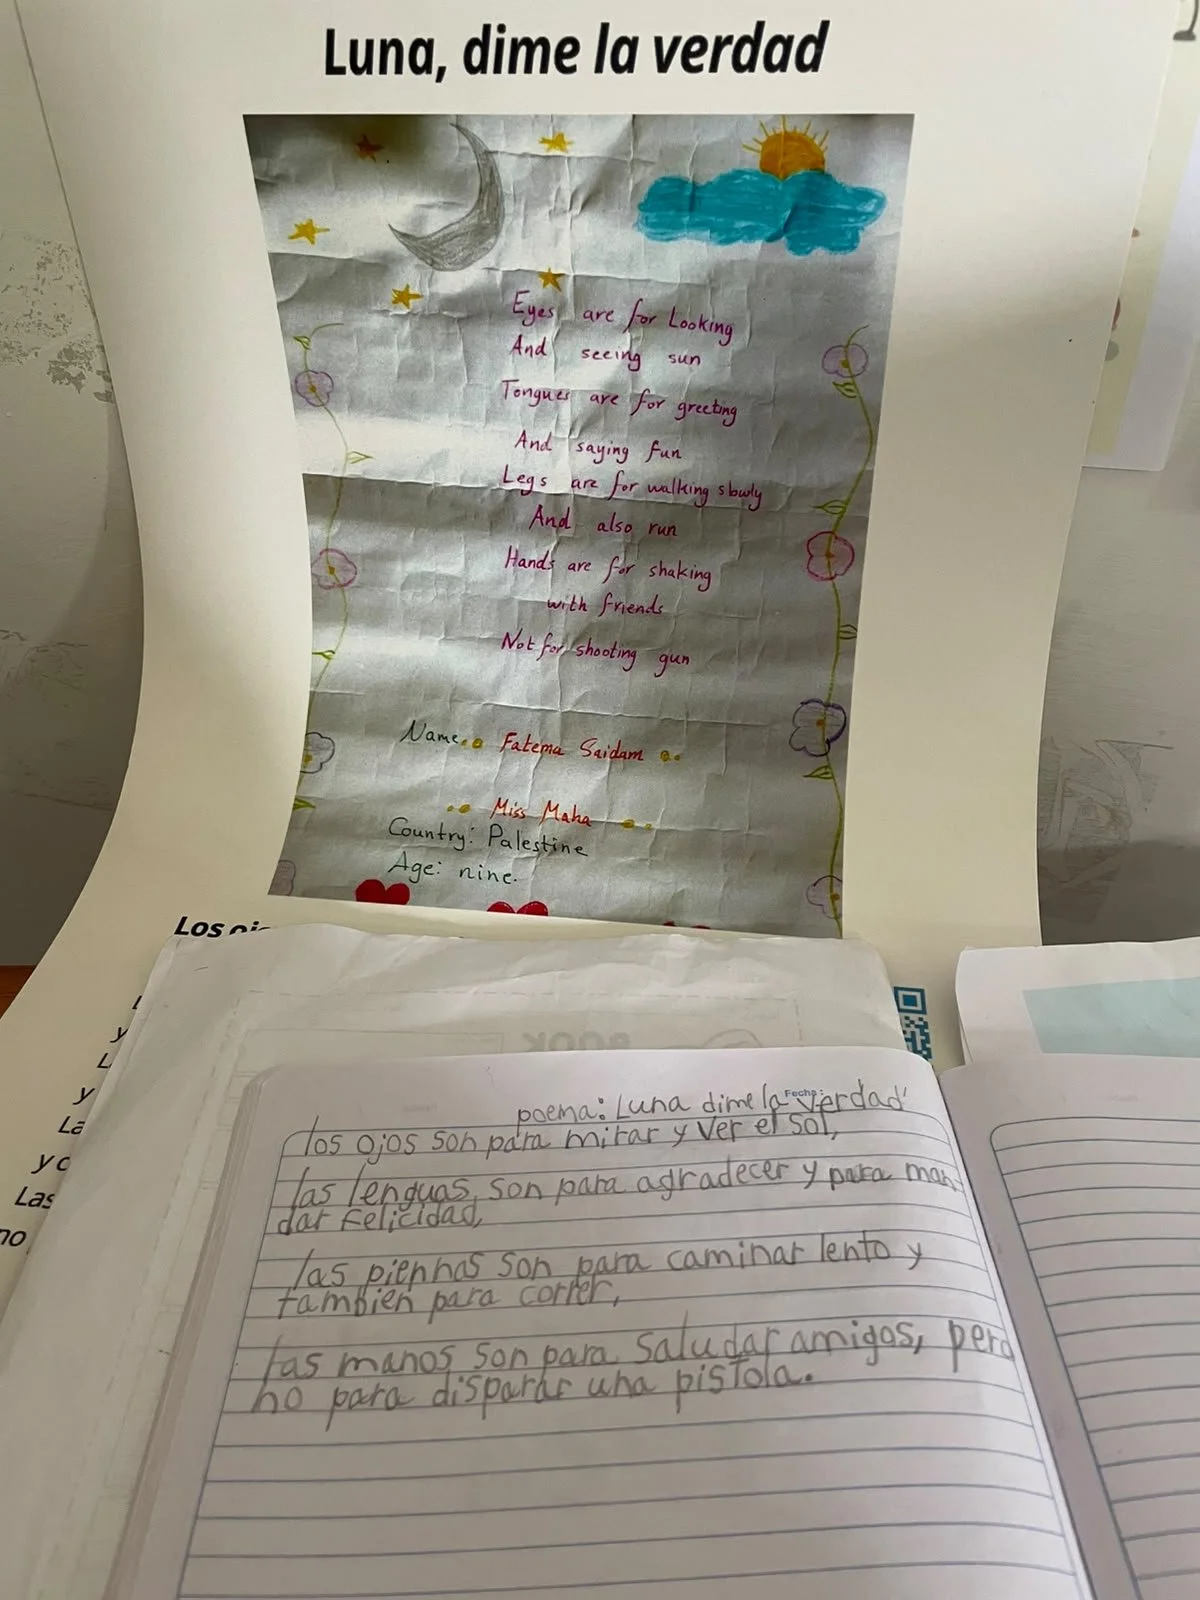 Luna, dime la verdad
Eyes are for Looking
And seeing sun
Tongues are for greeting
And saying fun
Legs are for walking slowly
And also run
Hands are for shaking
with friends
Not for shooting gun
Name.. Fatema Saidam ..
.. Miss Maha ..
Country: Palestine
Age: nine.
Los
y
L
y
La
y c
Las
no
BOOK
Fecha:
poema: Luna dime la verdad
los ojos son para mirar y ver el sol,
las lenguas, son para agradecer y para man-
dar felicidad,
las piernas son para caminar lento y
tambien para correr,
las manos son para saludar amigos, pero
no para disparar una pistola.